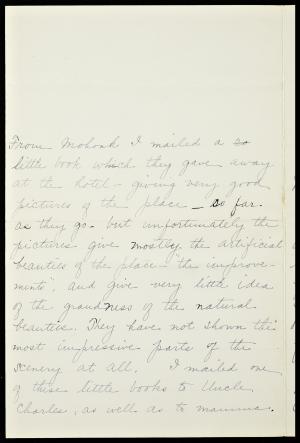 From Mohonk I mailed a so
little book which they gave away
at the hotel - giving very good
pictures of the place - so far
as they go - but unfortunately the
pictures give mostly the artificial
beauties of the place - "the improve-
ments", and give very little idea
of the grandness of the natural
beauties. They have not shown the
most impressive parts of the
scenery at all. I mailed one
of these little books to Uncle
Charles, as well as to mamma.